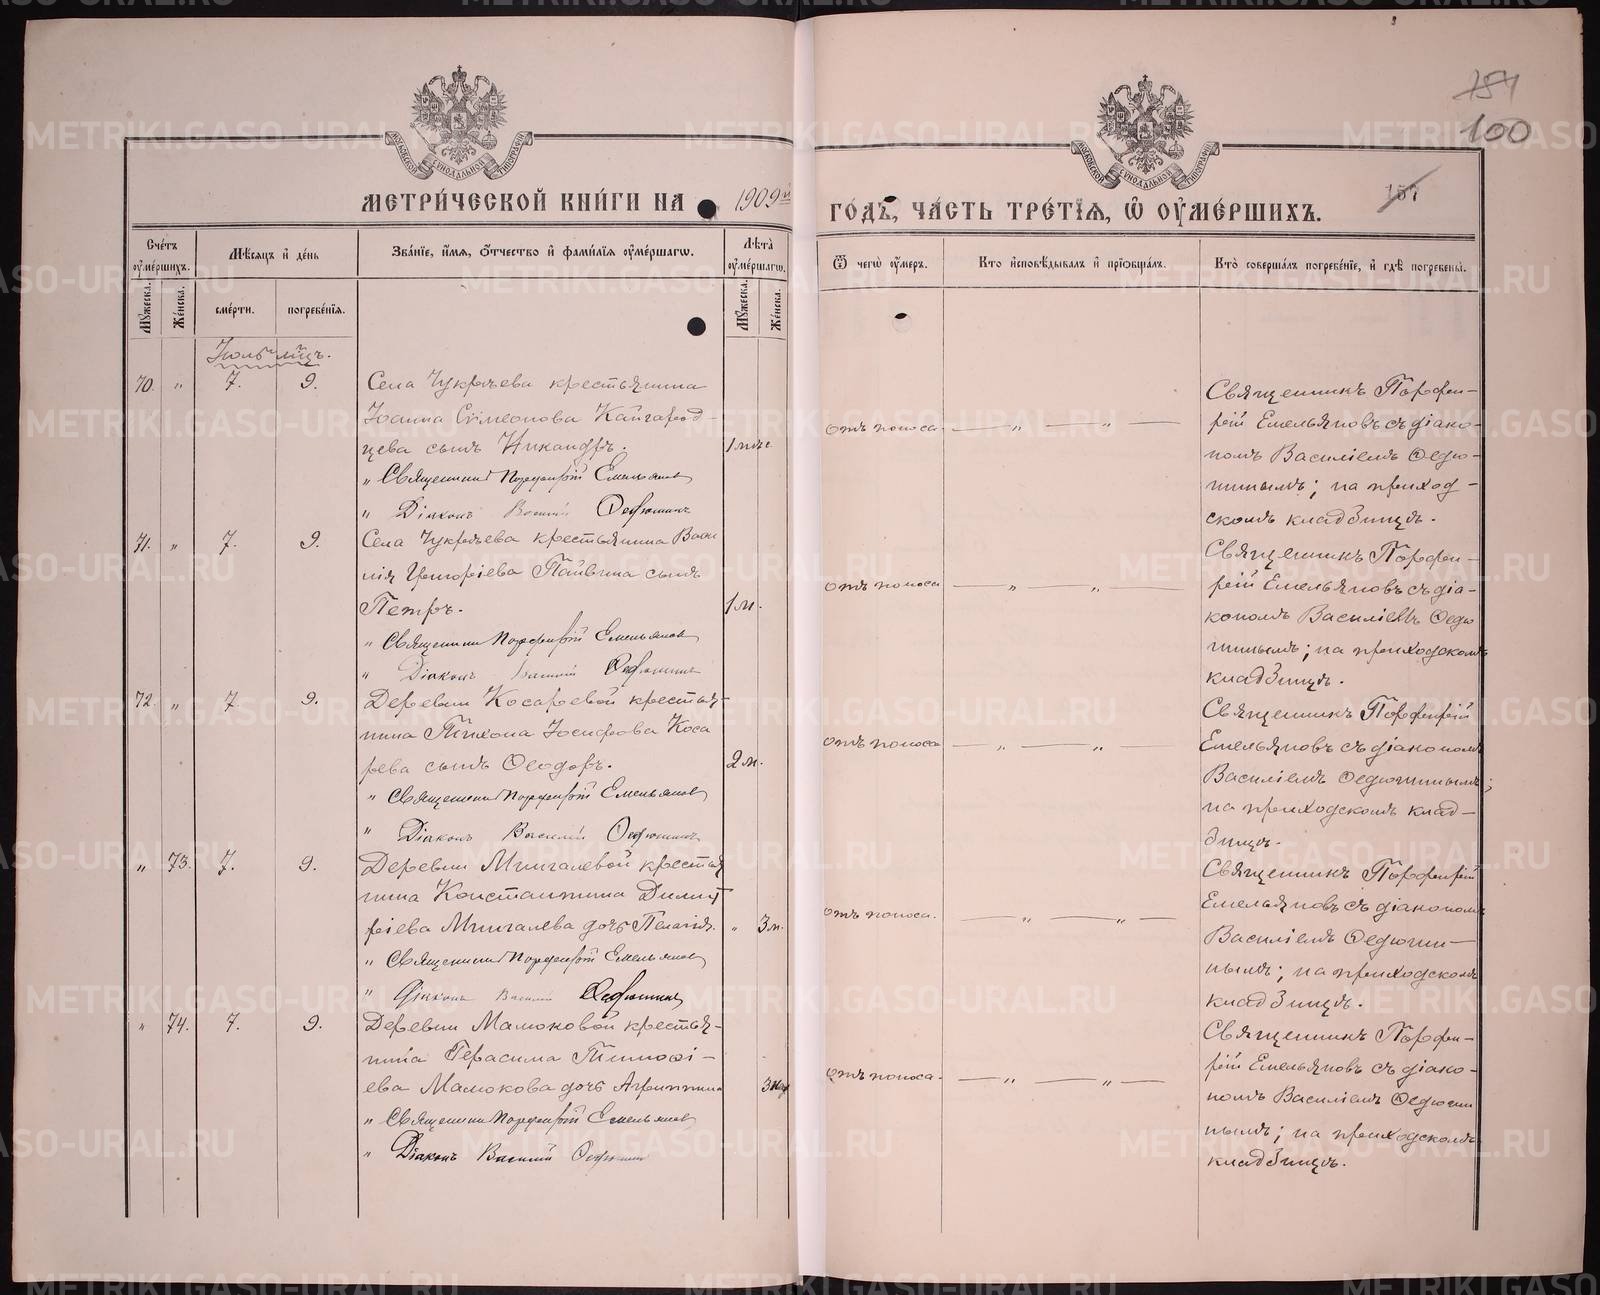 154
100
157
МЕТРИ́ЧЕСКОЙ КНИ́ГИ НА 1909й
ГО́ДЪ, ЧА́СТЬ ТРЕ́ТІѦ, Ѡ҆ ОУ҆МЕ́РШИХЪ.
Сче́тъ оу҆ме́ршихъ.
Мꙋ́жеска.
Же́нска.
Мѣ́сѧцъ и҆ де́нь
сме́рти.
погребе́нїѧ.
Зва́нїе, и҆́мѧ, ѻ҆́тчество и҆ фами́лїѧ оу҆ме́ршагѡ.
Лѣ́та оу҆ме́ршагѡ.
Мꙋ́жеска.
Же́нска.
Ѿ чегѡ̀ оу҆́меръ.
Кто̀ и҆сповѣ́дывалъ и҆ прїѻбща́лъ.
Кто̀ соверша́лъ погребе́нїе, и҆ гдѣ̀ погребены̀.
Іюль мѣсяцъ.
70. " 7. 9.
Села Чукрѣева крестьянина
Іоанна Симеонова Кайгород-
цева сынъ Никандръ.
1 мѣс
" Священникъ Порфирій Емельяновъ
" Діаконъ Василій Ѳедюшинъ
отъ поноса.
— " — " —
Священникъ Порфи-
рій Емельяновъ съ діако-
номъ Василіемъ Ѳедю-
шинымъ; на приход-
скомъ кладбищѣ.
71. " 7. 9.
Села Чукрѣева крестьянина Васи
лія Григоріева Пайвина сынъ
Петръ.
1 м.
" Священникъ Порфирій Емельяновъ
" Діаконъ Василій Ѳедюшинъ
отъ поноса
— " — " —
Священникъ Порфи-
рій Емельяновъ съ діа-
кономъ Василіемъ Ѳедю
шинымъ; на приходскомъ
кладбищѣ.
72. " 7. 9.
Деревни Косаревой крестья-
нина Тихона Іосифова Коса
рева сынъ Ѳеодоръ.
2 м.
" Священникъ Порфирій Емельяновъ
" Діаконъ Василій Ѳедюшинъ
отъ поноса
— " — " —
Священникъ Порфирій
Емельяновъ съ діакономъ
Василіемъ Ѳедюшинымъ;
на приходскомъ клад-
бищѣ.
" 73. 7. 9.
Деревни Мингалевой крестья
нина Константина Димит
ріева Мингалева дочь Пелагія.
" 3 м.
" Священникъ Порфирій Емельяновъ
" Діаконъ Василій Ѳедюшинъ
отъ поноса.
— " — " —
Священникъ Порфирій
Емельяновъ съ діакономъ
Василіемъ Ѳедюши-
нымъ; на приходскомъ
кладбищѣ.
" 74. 7. 9.
Деревни Мамоковой крестья-
нина Герасима Тимоѳі-
ева Мамокова дочь Агриппина
" Священникъ Порфирій Емельяновъ
" Діаконъ Василій Ѳедюшинъ
отъ поноса.
— " — " —
Священникъ Порфи-
рій Емельяновъ съ діако-
номъ Василіемъ Ѳедюши
нымъ; на приходскомъ
кладбищѣ.
METRIKI.GASO-URAL.RU